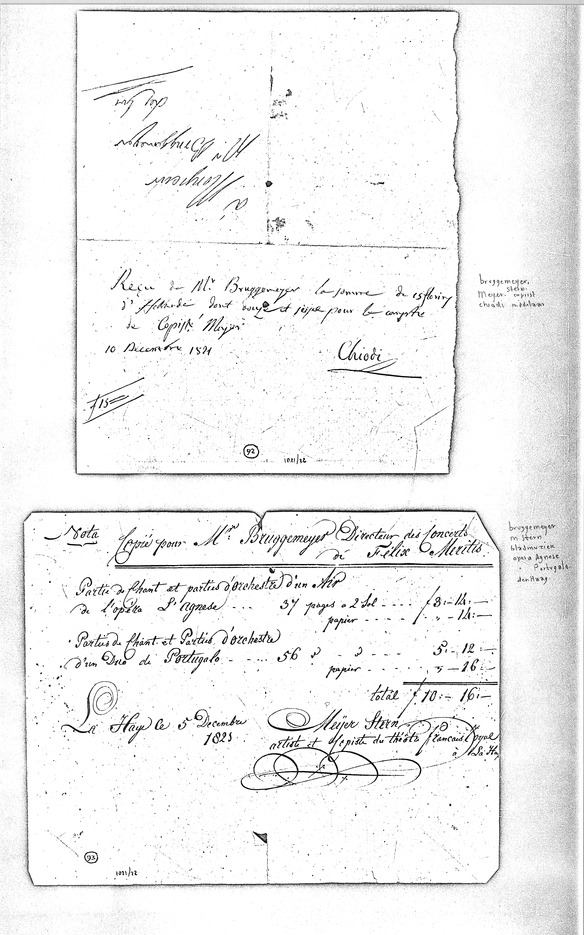 à
Monsieur
Mr Bruggemeyer
Reçu de Mr Bruggemeyer la somme de 15 florins
d'Hollande dont et pour le compte
de Copiste Meyer
10 Decembre 1821
Chiodi
f15=
92
1021/22
bruggemeyer,
Stern
Meyer copiist
chiodi
Nota
Copié pour Mr Bruggemeyer Directeur des Concerts
de Félix Meritis
Partie de Chant et parties d'orchestre d'un Air
de l'opéra L'Agnese 37 pages a 2 Sol f 3:- 14:-
papier " - 14:-
Parties de Chant et Parties d'orchestre
d'un Duo de Portugalo 56 " " 5:- 12:-
papier " - 16:-
total f 10:- 16:-
La Haye le 5 Decembre
1821
Meijer Stern
artiste et Copiste du théâtre francais royal
à La Haye
93
1021/22
bruggemeyer
m Stern
bladmuziek
opera Agnese
Portugalo
den Haag.